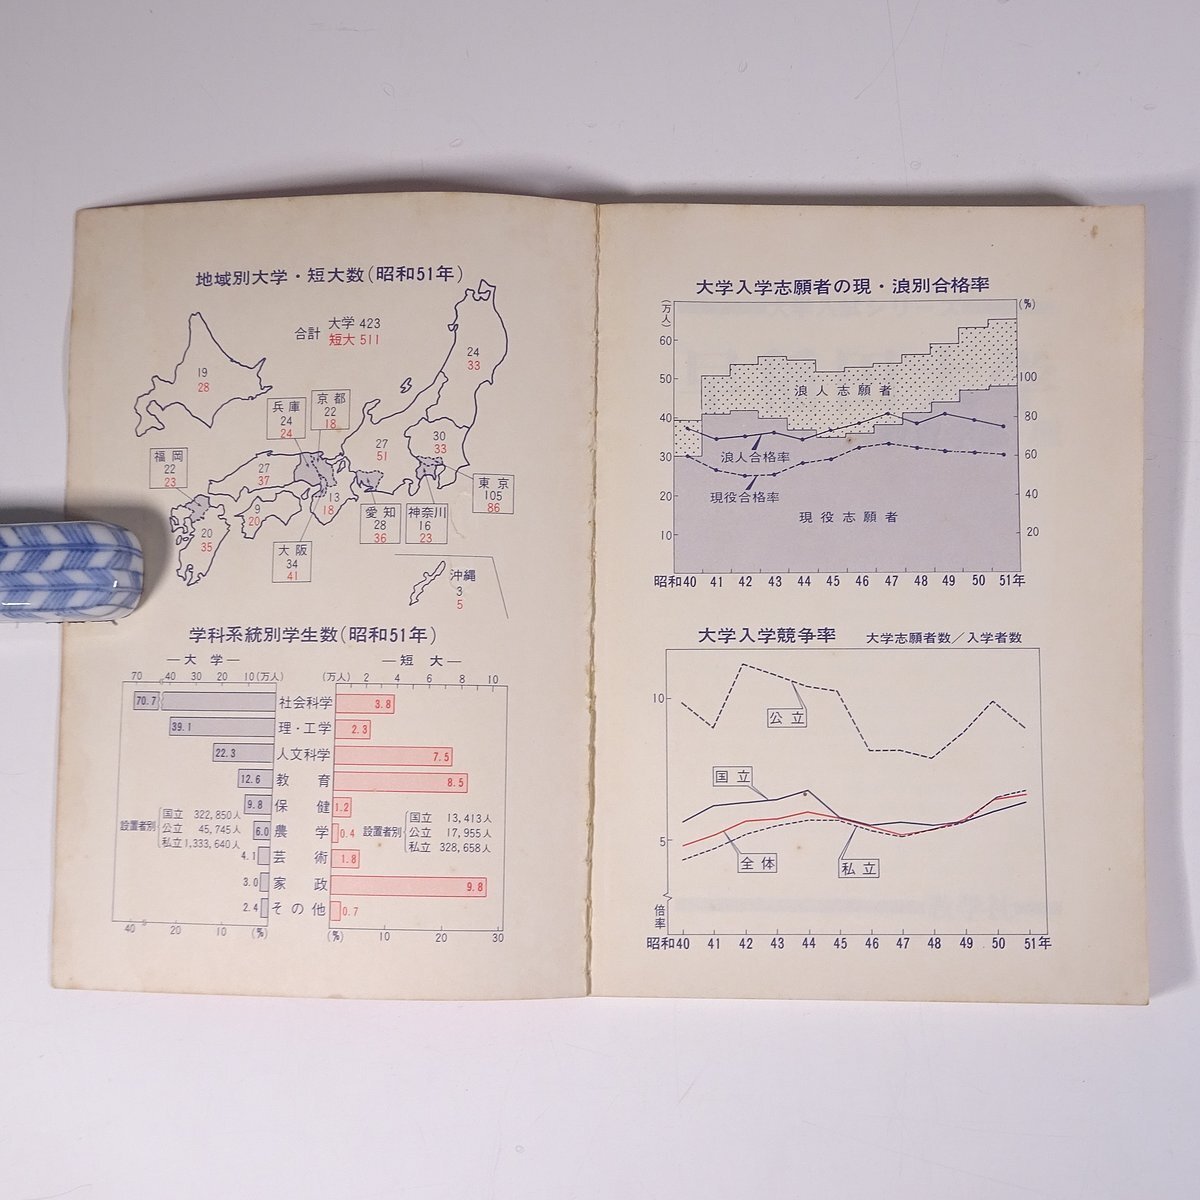 地域別大学・短大数(昭和51年)
合計
大学 423
短大 511
19
28
24
33
兵庫
24
24
京都
22
18
27
51
30
33
福岡
22
23
27
37
東京
105
86
13
18
9
20
20
35
愛知
28
36
神奈川
16
23
大阪
34
41
沖縄
3
5
学科系統別学生数(昭和51年)
―大 学―
―短 大―
70 40 30 20 10(万人)
(万人) 2 4 6 8 10
70.7 社会科学 3.8
39.1 理・工学 2.3
22.3 人文科学 7.5
12.6 教育 8.5
9.8 保健 1.2
6.0 農学 0.4
4.1 芸術 1.8
3.0 家政 9.8
2.4 その他 0.7
設置者別
国立 322,850人
公立 45,745人
私立1,333,640人
設置者別
国立 13,413人
公立 17,955人
私立 328,658人
40 20 10 (%)
(%) 10 20 30
大学入学志願者の現・浪別合格率
(万人)
(%)
60
50
40
30
20
10
100
80
60
40
20
浪人志願者
浪人合格率
現役合格率
現役志願者
昭和40 41 42 43 44 45 46 47 48 49 50 51年
大学入学競争率 大学志願者数/入学者数
10
5
倍率
公立
国立
全体
私立
昭和40 41 42 43 44 45 46 47 48 49 50 51年